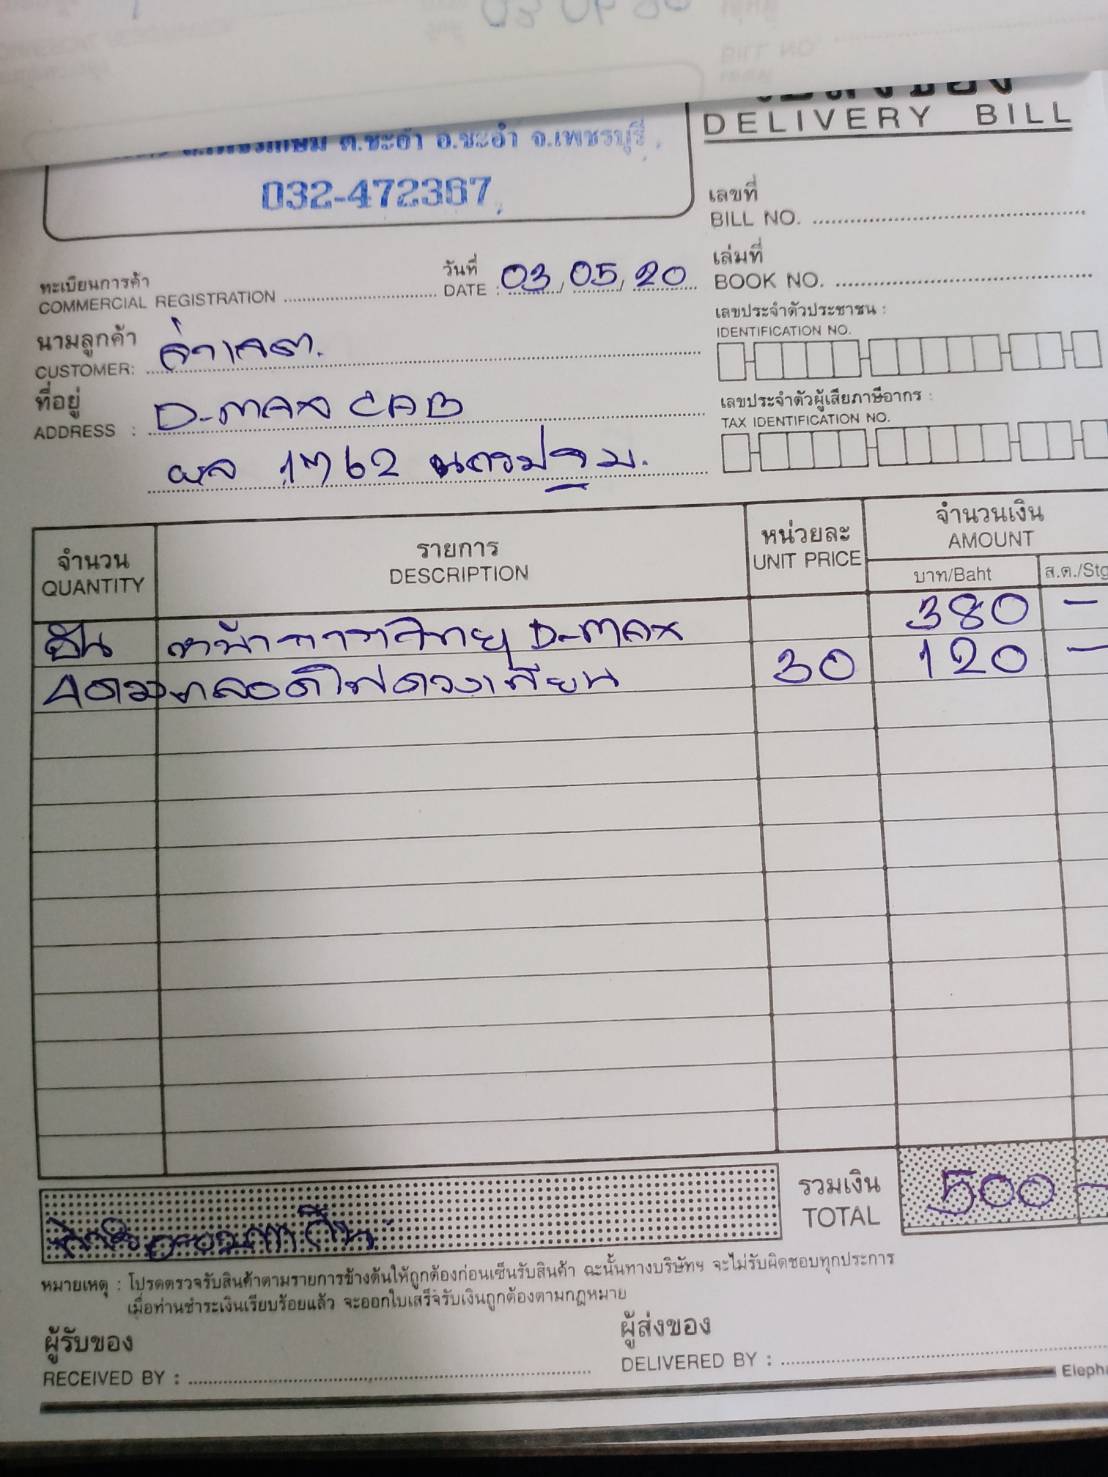 ต.ชะอำ อ.ชะอำ จ.เพชรบุรี
032-472367
DELIVERY BILL
เลขที่
BILL NO.
เล่มที่
BOOK NO.
ทะเบียนการค้า
COMMERCIAL REGISTRATION
วันที่
DATE : 03/05/20
เลขประจำตัวประชาชน :
IDENTIFICATION NO.
นามลูกค้า
CUSTOMER:
ที่อยู่ D-MAX CAB
ADDRESS :
ผล 1762 นครปฐม.
เลขประจำตัวผู้เสียภาษีอากร :
TAX IDENTIFICATION NO.
จำนวน รายการ หน่วยละ จำนวนเงิน
QUANTITY DESCRIPTION UNIT PRICE AMOUNT
บาท/Baht ส.ต./Stg
D-MAX 380 -
4ดวง หลอดไฟดวงเทียน 30 120 -
รวมเงิน
TOTAL 500 -
หมายเหตุ : โปรดตรวจรับสินค้าตามรายการข้างต้นให้ถูกต้องก่อนเซ็นรับสินค้า ฉะนั้นทางบริษัทฯ จะไม่รับผิดชอบทุกประการ
เมื่อท่านชำระเงินเรียบร้อยแล้ว จะออกใบเสร็จรับเงินถูกต้องตามกฎหมาย
ผู้รับของ
RECEIVED BY :
ผู้ส่งของ
DELIVERED BY :